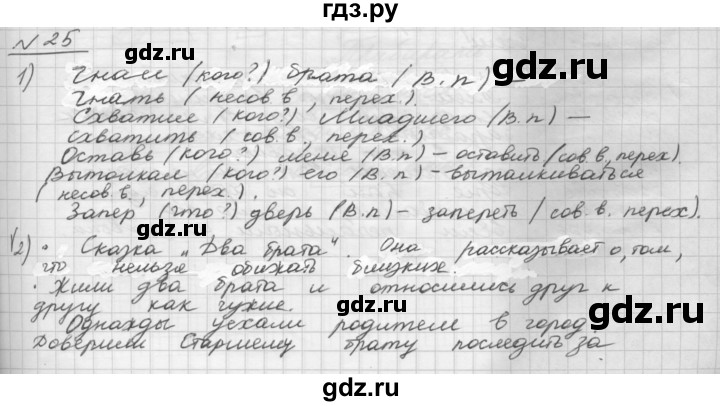 гдз.ру
№ 25
1) Гнал (кого?) брата (В.п) –
Гнать (несов.в, перех.)
Схватил (кого?) Младшего (В.п) –
схватить (сов.в, перех.)
Оставь (кого?) меня (В.п) – оставить (сов.в, перех).
Вытолкал (кого?) его (В.п) – выталкиваться
(несов.в, перех.).
Запер (что?) дверь (В.п) – запереть (сов.в. перех).
2) • Сказка „Два брата". Она рассказывает о том,
что нельзя обижать близких.
• Жили два брата и относились друг к
другу как чужие.
Однажды уехали родители в город.
Доверили Старшему брату последить за
gdz.ru
gdz.ru
gdz.ru
gdz.ru
gdz.ru
gdz.ru
gdz.ru
gdz.ru
gdz.ru